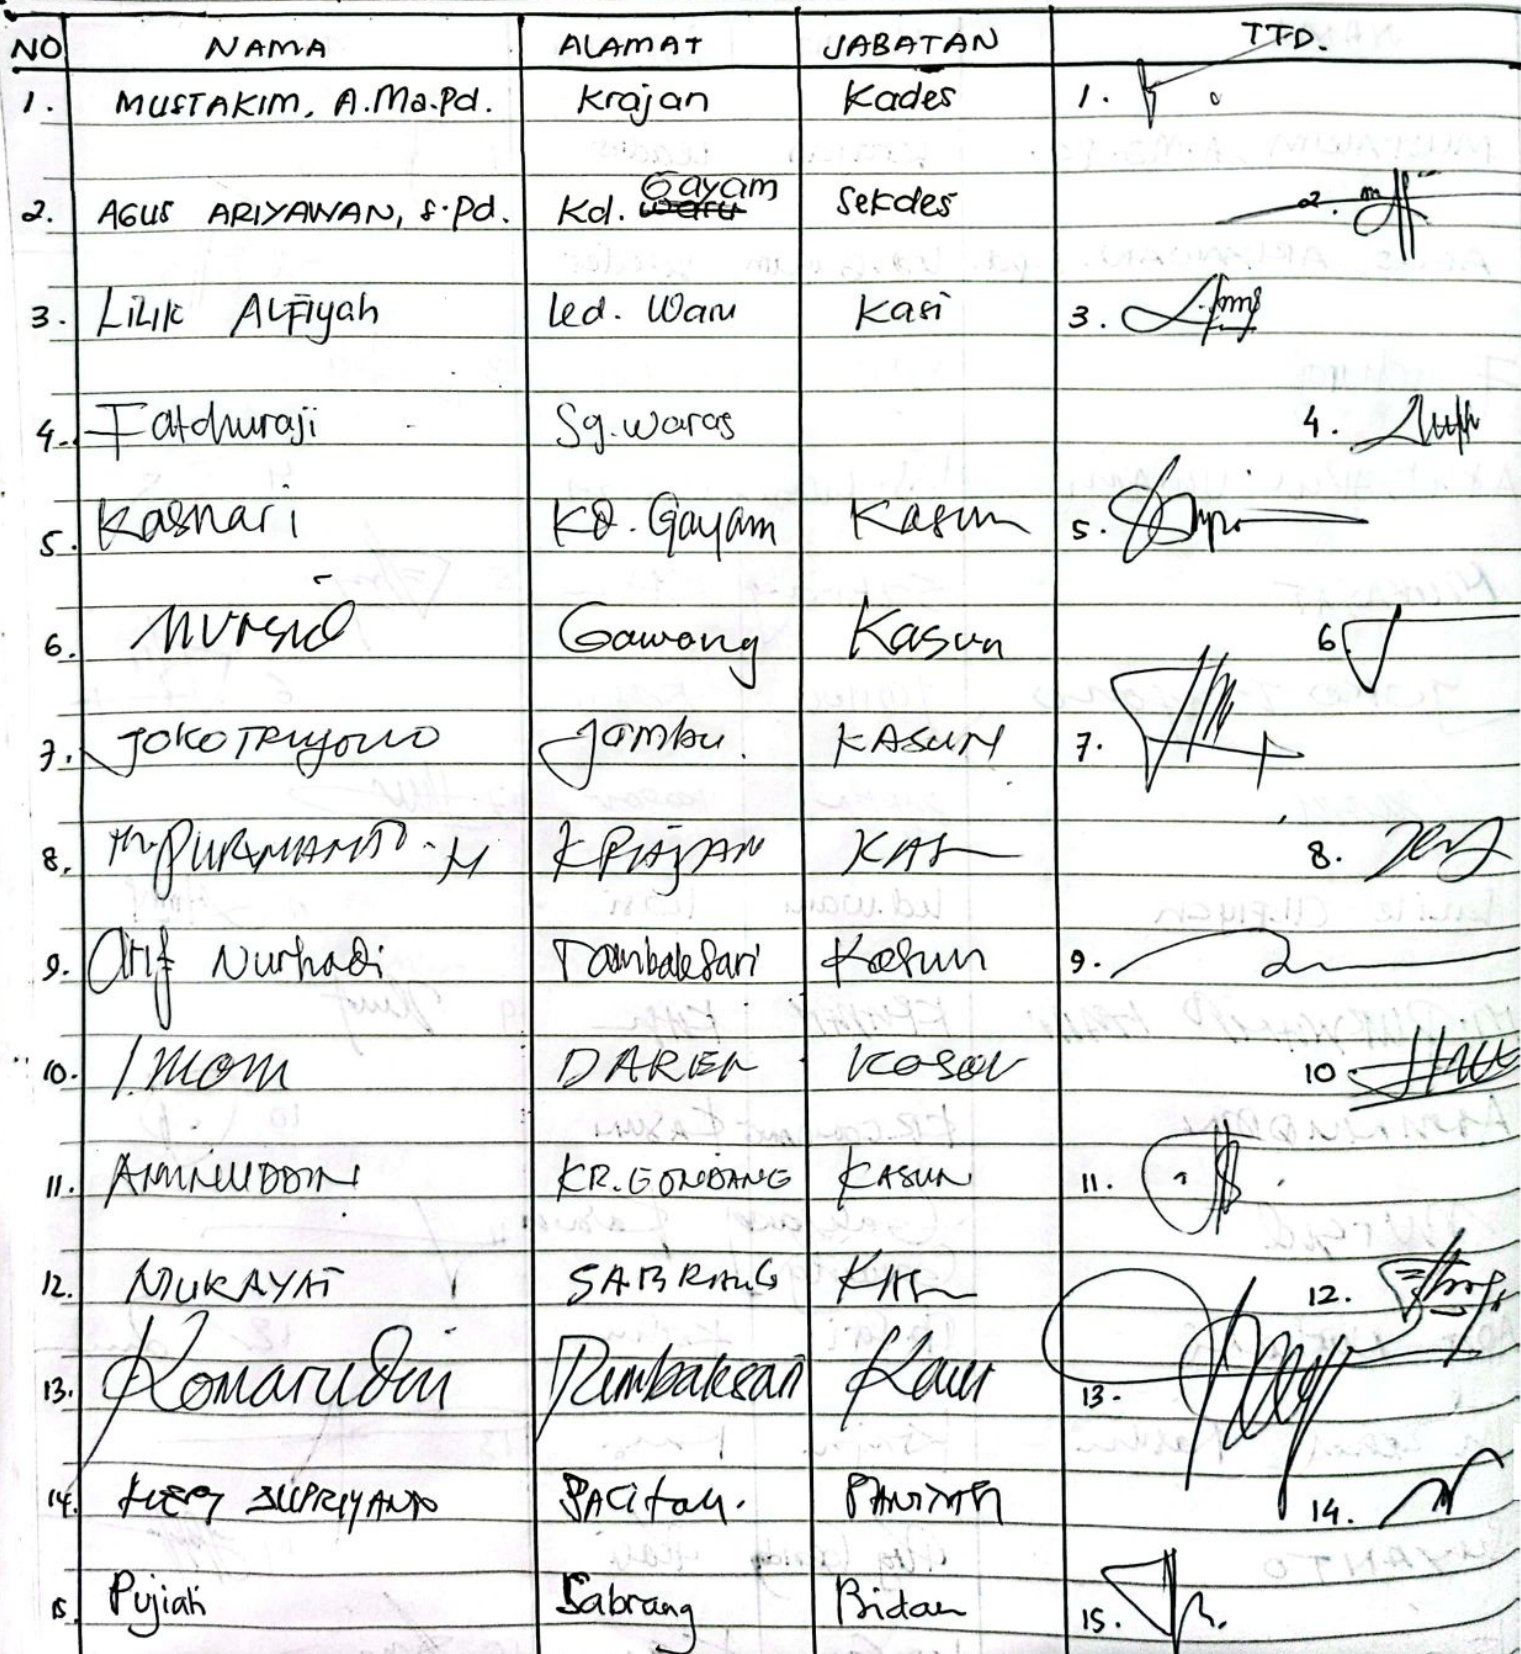 NO NAMA ALAMAT JABATAN TTD.
1. MUSTAKIM, A.Ma.Pd. Krajan Kades 1.
2. AGUS ARIYAWAN, S.Pd. Kd. Gayam Sekdes 2.
3. Lilik Alfiyah Ked. Waru Kasi 3.
4. Fatchuraji Sg. waras 4.
5. Kasnari KD. Gayam Kasun 5.
6. Mursid Gawang Kasun 6.
7. JOKO TRIYONO Jambu. KASUN 7.
8. PURWANTO KRAJAN 8.
9. Arif Nurhadi Tambaksari Kasun 9.
10. Imam 10.
11. AMINUDDIN KR. GONDANG KASUN 11.
12. MUKAYAT SABRANG 12.
13. Komarudin Tambaksari Kaur 13.
14. SUPRIYANTO PACitan. 14.
15 Pujiah Sabrang Bidan 15.